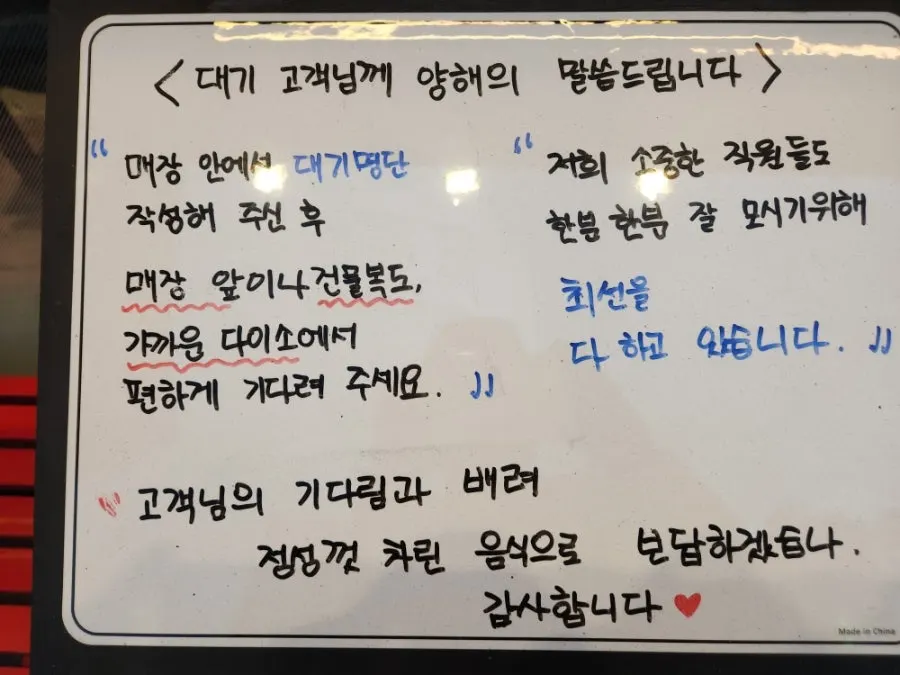 <대기 고객님께 양해의 말씀드립니다>
“ 매장 안에서 대기명단
작성해 주신 후
매장 앞이나 건물복도,
가까운 다이소에서
편하게 기다려 주세요. ”
“ 저희 소중한 직원들도
한분 한분 잘 모시기위해
최선을
다 하고 있습니다. ”
고객님의 기다림과 배려
정성껏 차린 음식으로 보답하겠습니다.
감사합니다 ♥
Made in China